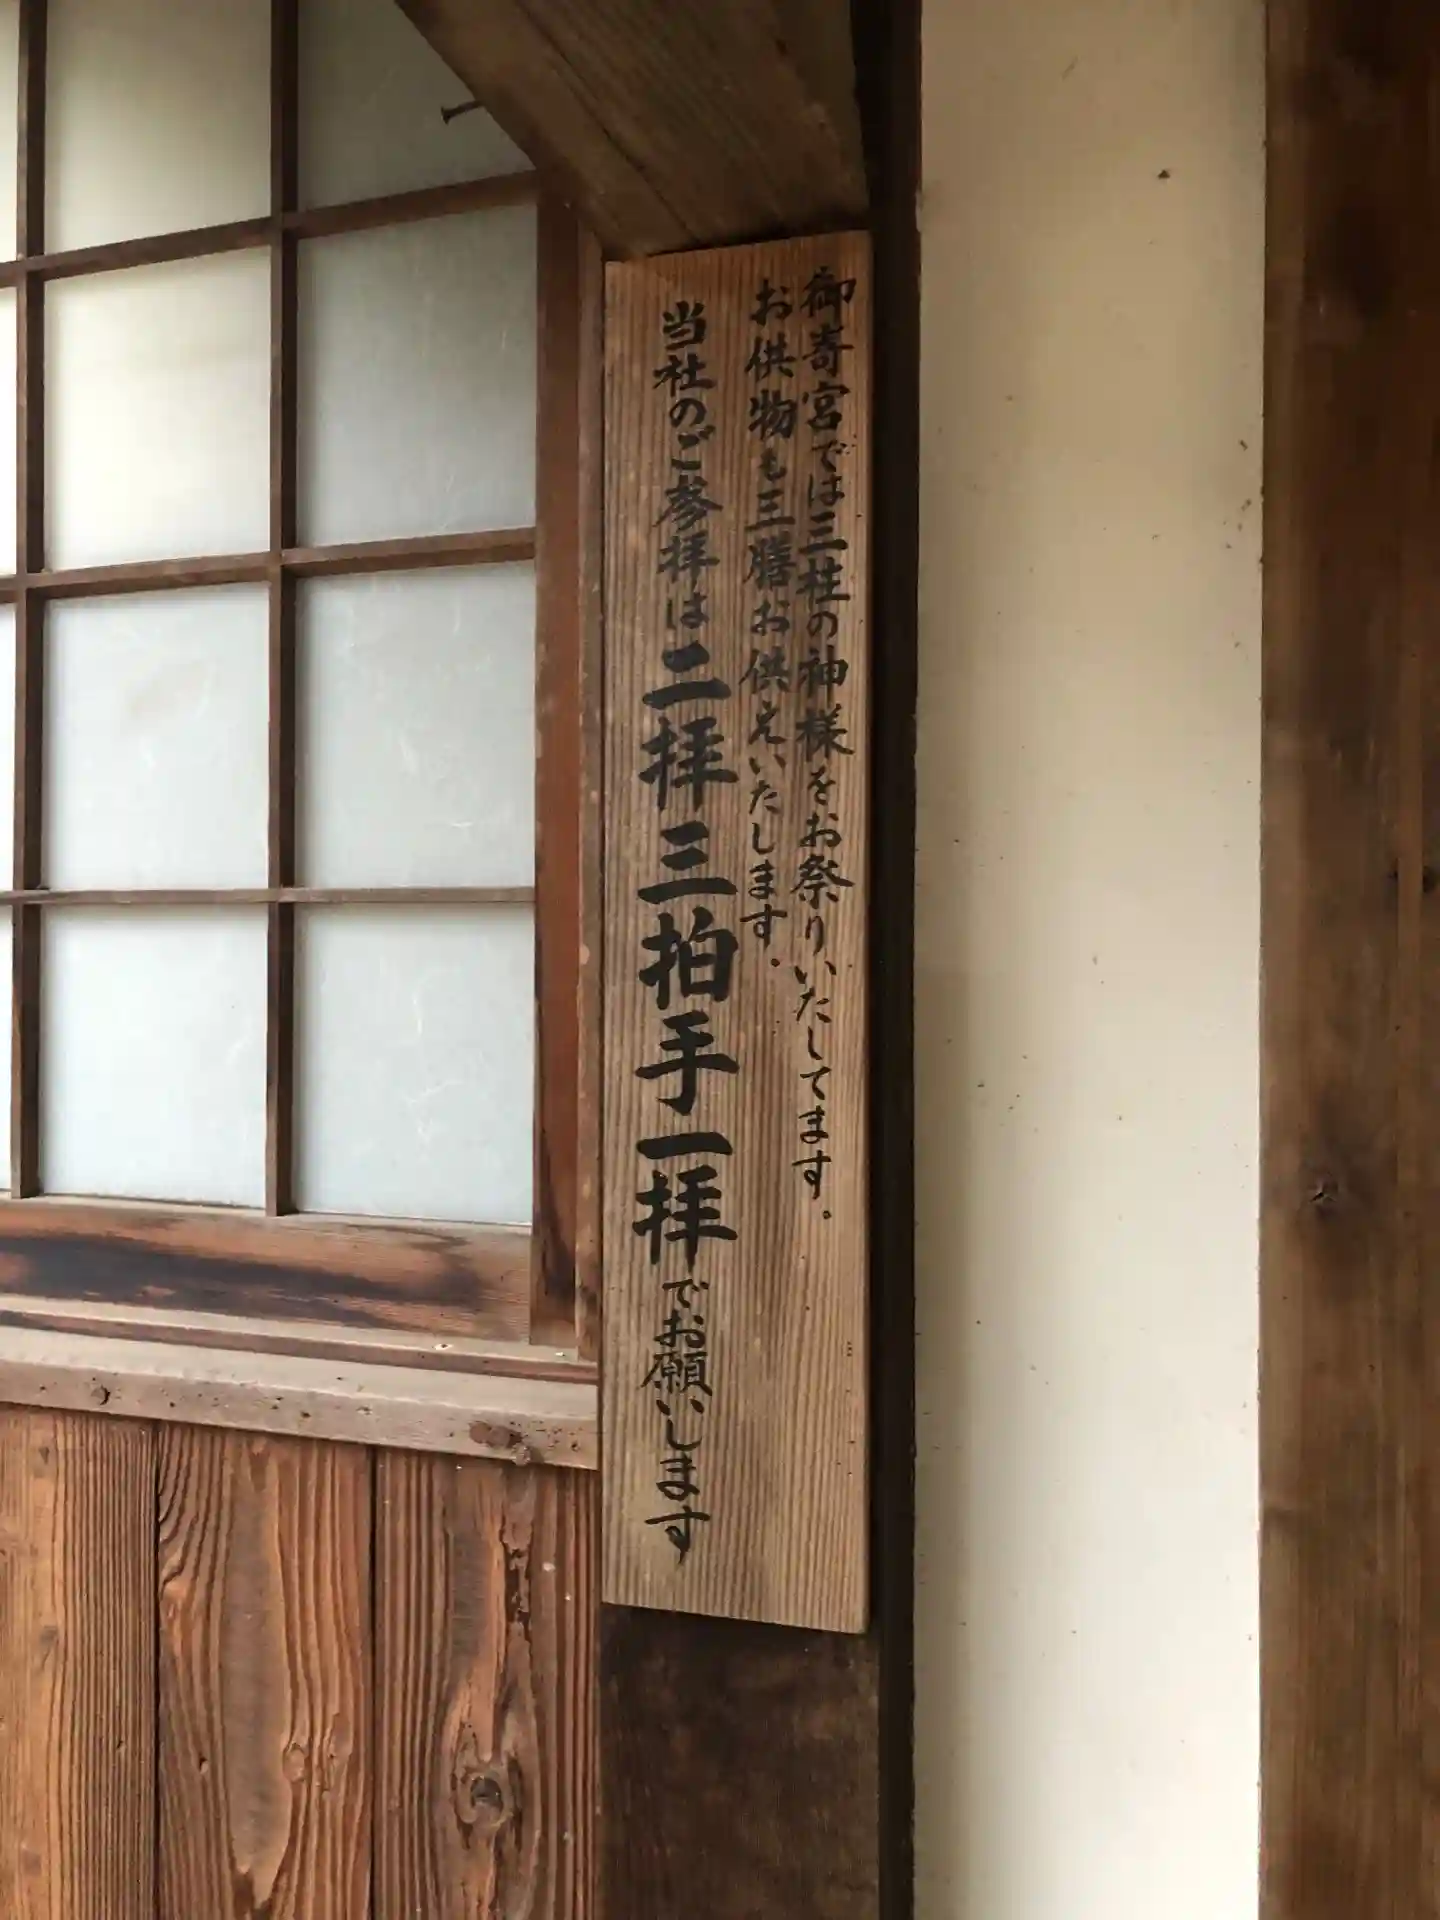 御嵜宮では三柱の神様をお祭りいたしてます。
お供物も三膳お供えいたします。
当社のご参拝は二拝三拍手一拝でお願いします